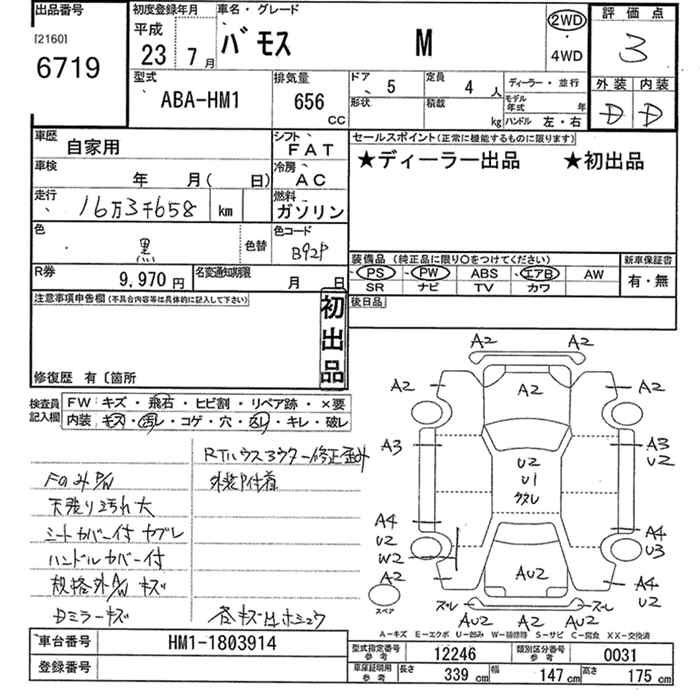 出品番号
[2160]
6719
初度登録年月
平成
23年 7月
車名・グレード
バモス M
2WD
・
4WD
評価点
3
外装 内装
D D
型式
ABA-HM1
排気量
656
CC
ドア
5
定員
4人
形状
積載
kg
ディーラー・並行
モデル年式 年
ハンドル 左・右
車歴
自家用
シフト
FAT
車検
年 月( 日)
冷房
AC
走行
16万3千658 km
燃料
ガソリン
色
黒
色替
色コード
B92P
R券
9,970円
名変通知期限
月 日
セールスポイント(正常に機能するものに限ります)
★ディーラー出品 ★初出品
装備品 (純正品に限り〇をつけてください)
新車保証書
PS PW ABS エアB AW
有・無
SR ナビ TV カワ
後日品
注意事項申告欄(不具合内容等は具体的に記入して下さい)
初出品
修復歴 有〔箇所
検査員記入欄
FW: キズ・飛石・ヒビ割・リペア跡・×要
内装: キズ・汚レ・コゲ・穴・凹レ・キレ・破レ
RTハウスアウター修正歪み
Fのみ P/W
外装P付着
天張り汚れ大
シートカバー付 ヤブレ
ハンドルカバー付
規格外A/W キズ
Dミラーキズ
各キズ凹ホシュウ
A2 A2
A2 A2 A2
A3 A3
U2
U2
U1
A4 A4
U2 U3
W2
A2 AU2 A4
U2
スペア
ズレ A2 AU2 AU2 ズレ
A-キズ E-エクボ U-凹み W-補修跡 S-サビ C-腐食 XX-交換済
車台番号
HM1-1803914
登録番号
型式指定番号
参考
12246
類別区分番号
参考
0031
車庫証明用
参考
長さ 339 cm 幅 147 cm 高さ 175 cm